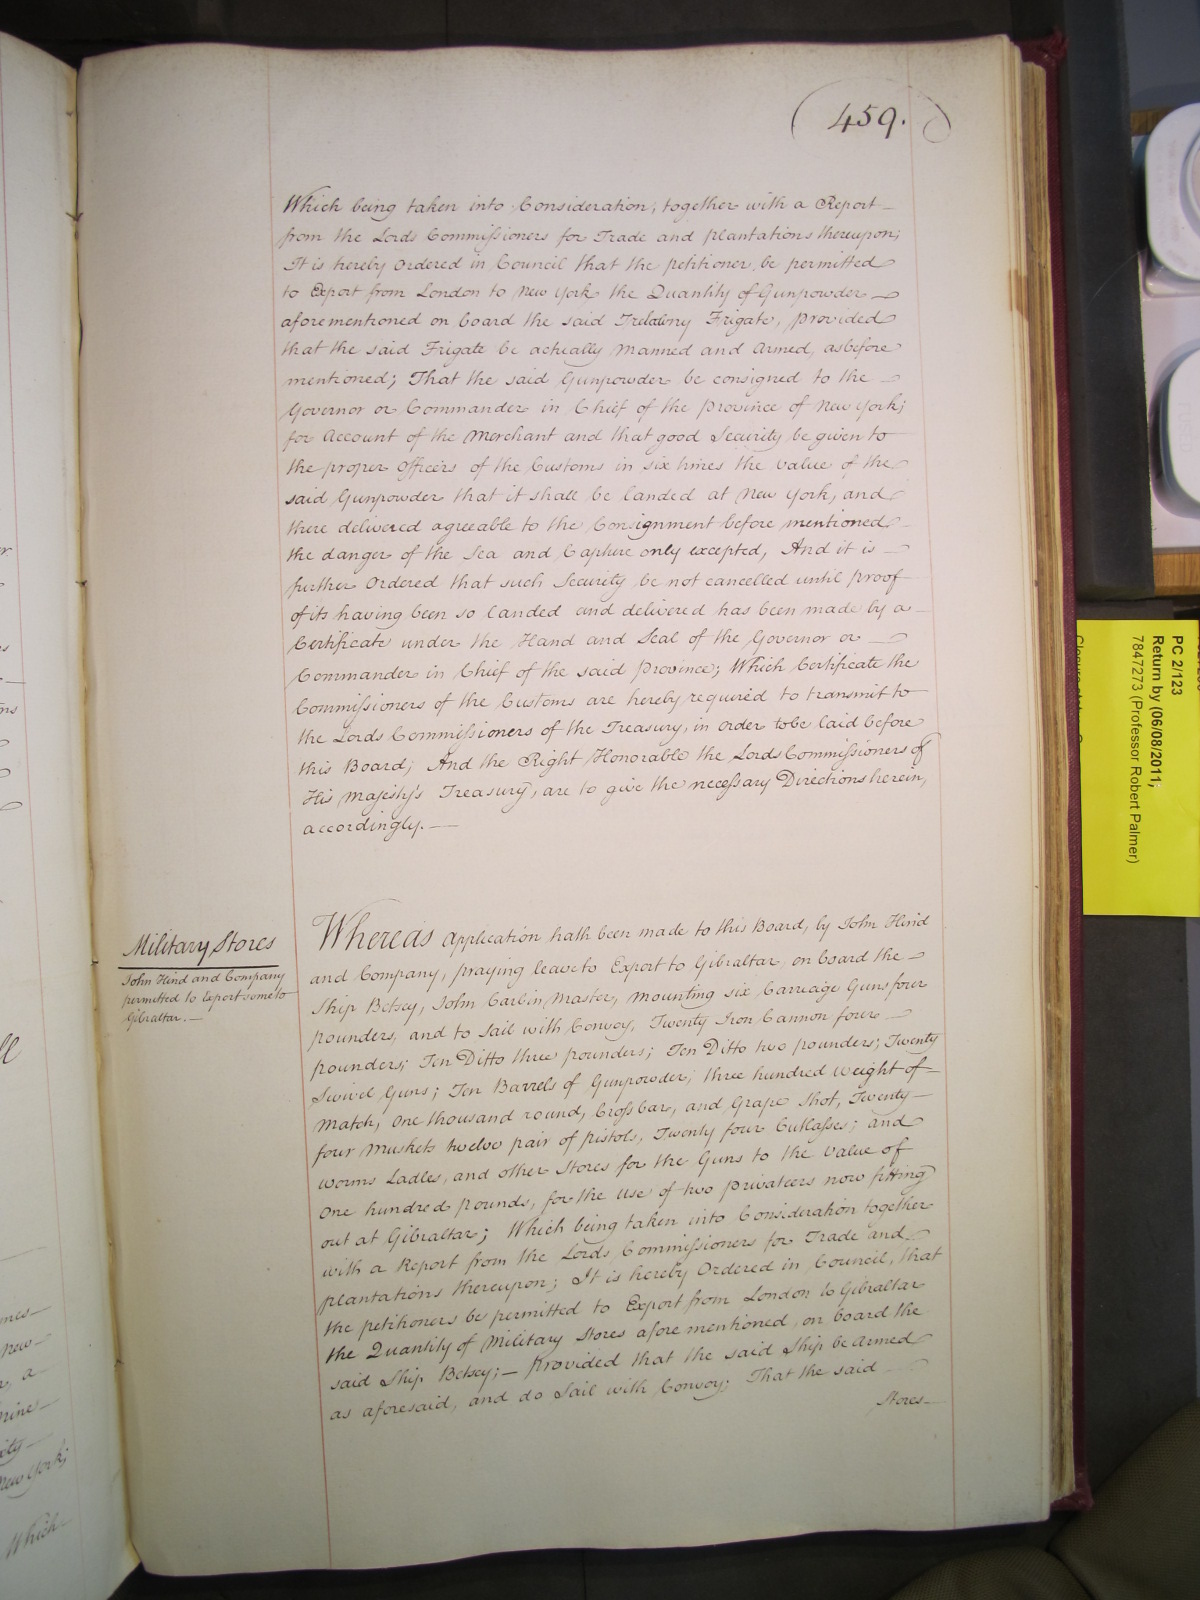 459.
Which being taken into Consideration, together with a Report
from the Lords Commissioners for Trade and plantations thereupon;
It is hereby Ordered in Council that the petitioner be permitted
to Export from London to New York the Quantity of Gunpowder
aforementioned on board the said Trelawny Frigate, provided
that the said Frigate be actually Manned and Armed, as before
mentioned; That the said Gunpowder be consigned to the
Governor or Commander in Chief of the Province of New York;
for Account of the Merchant and that good Security be given to
the proper Officers of the Customs in six times the value of the
said Gunpowder that it shall be landed at New York, and
there delivered agreeable to the Consignment before mentioned
the danger of the Sea and Capture only excepted, And it is
further Ordered that such Security be not cancelled until proof
of its having been so landed and delivered has been made by a
Certificate under the Hand and Seal of the Governor or
Commander in Chief of the said Province; Which Certificate the
Commissioners of the Customs are hereby required to transmit to
the Lords Commissioners of the Treasury, in order to be laid before
this Board; And the Right Honorable the Lords Commissioners of
His Majesty's Treasury, are to give the necessary Directions herein,
accordingly.—
Military Stores
John Hind and Company
permitted to Export some to
Gibraltar.—
Whereas Application hath been made to this Board, by John Hind
and Company, praying leave to Export to Gibraltar on board the
Ship Betsey, John Carbin Master, mounting six Carriage Guns four
pounders, and to Sail with Convoy, Twenty Iron Cannon four
pounders; Ten Ditto three pounders; Ten Ditto two pounders; Twenty
Swivel Guns; Ten Barrels of Gunpowder; three hundred weight of
Match, One thousand round, Cross bar, and Grape Shot, Twenty
four Muskets twelve pair of pistols, Twenty four Cutlasses; and
worms Ladles, and other Stores for the Guns to the value of
One hundred pounds, for the use of two privateers now fitting
out at Gibraltar; Which being taken into Consideration together
with a Report from the Lords Commissioners for Trade and
plantations thereupon; It is hereby Ordered in Council, that
the petitioners be permitted to Export from London to Gibraltar
the Quantity of Military Stores afore mentioned, on board the
said Ship Betsey;— Provided that the said Ship be Armed
as aforesaid, and do Sail with Convoy; That the said
Stores
mes
New
, a
ity
New York;
Which
PC 2/123
Return by (06/08/2011;
7847273 (Professor Robert Palmer)